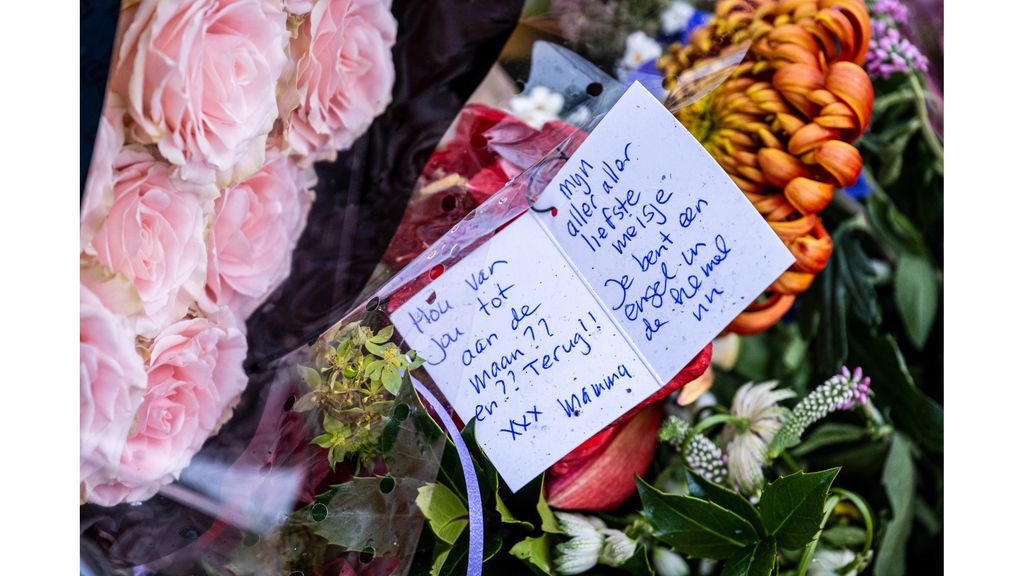 Hou van
jou tot
aan de
maan??
en?? Terug!!
xxx Mamma
mijn
aller aller
liefste
meisje
Je bent een
engel in
de hemel
nu